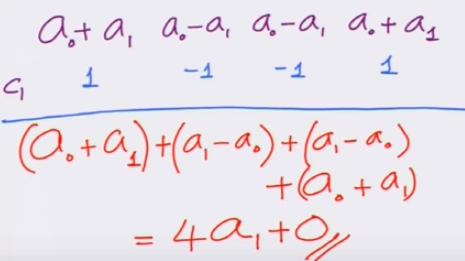 a₀+a₁ a₀-a₁ a₀-a₁ a₀+a₁
c₁ 1 -1 -1 1
(a₀+a₁)+(a₁-a₀)+(a₁-a₀)
+(a₀+a₁)
= 4a₁+0//